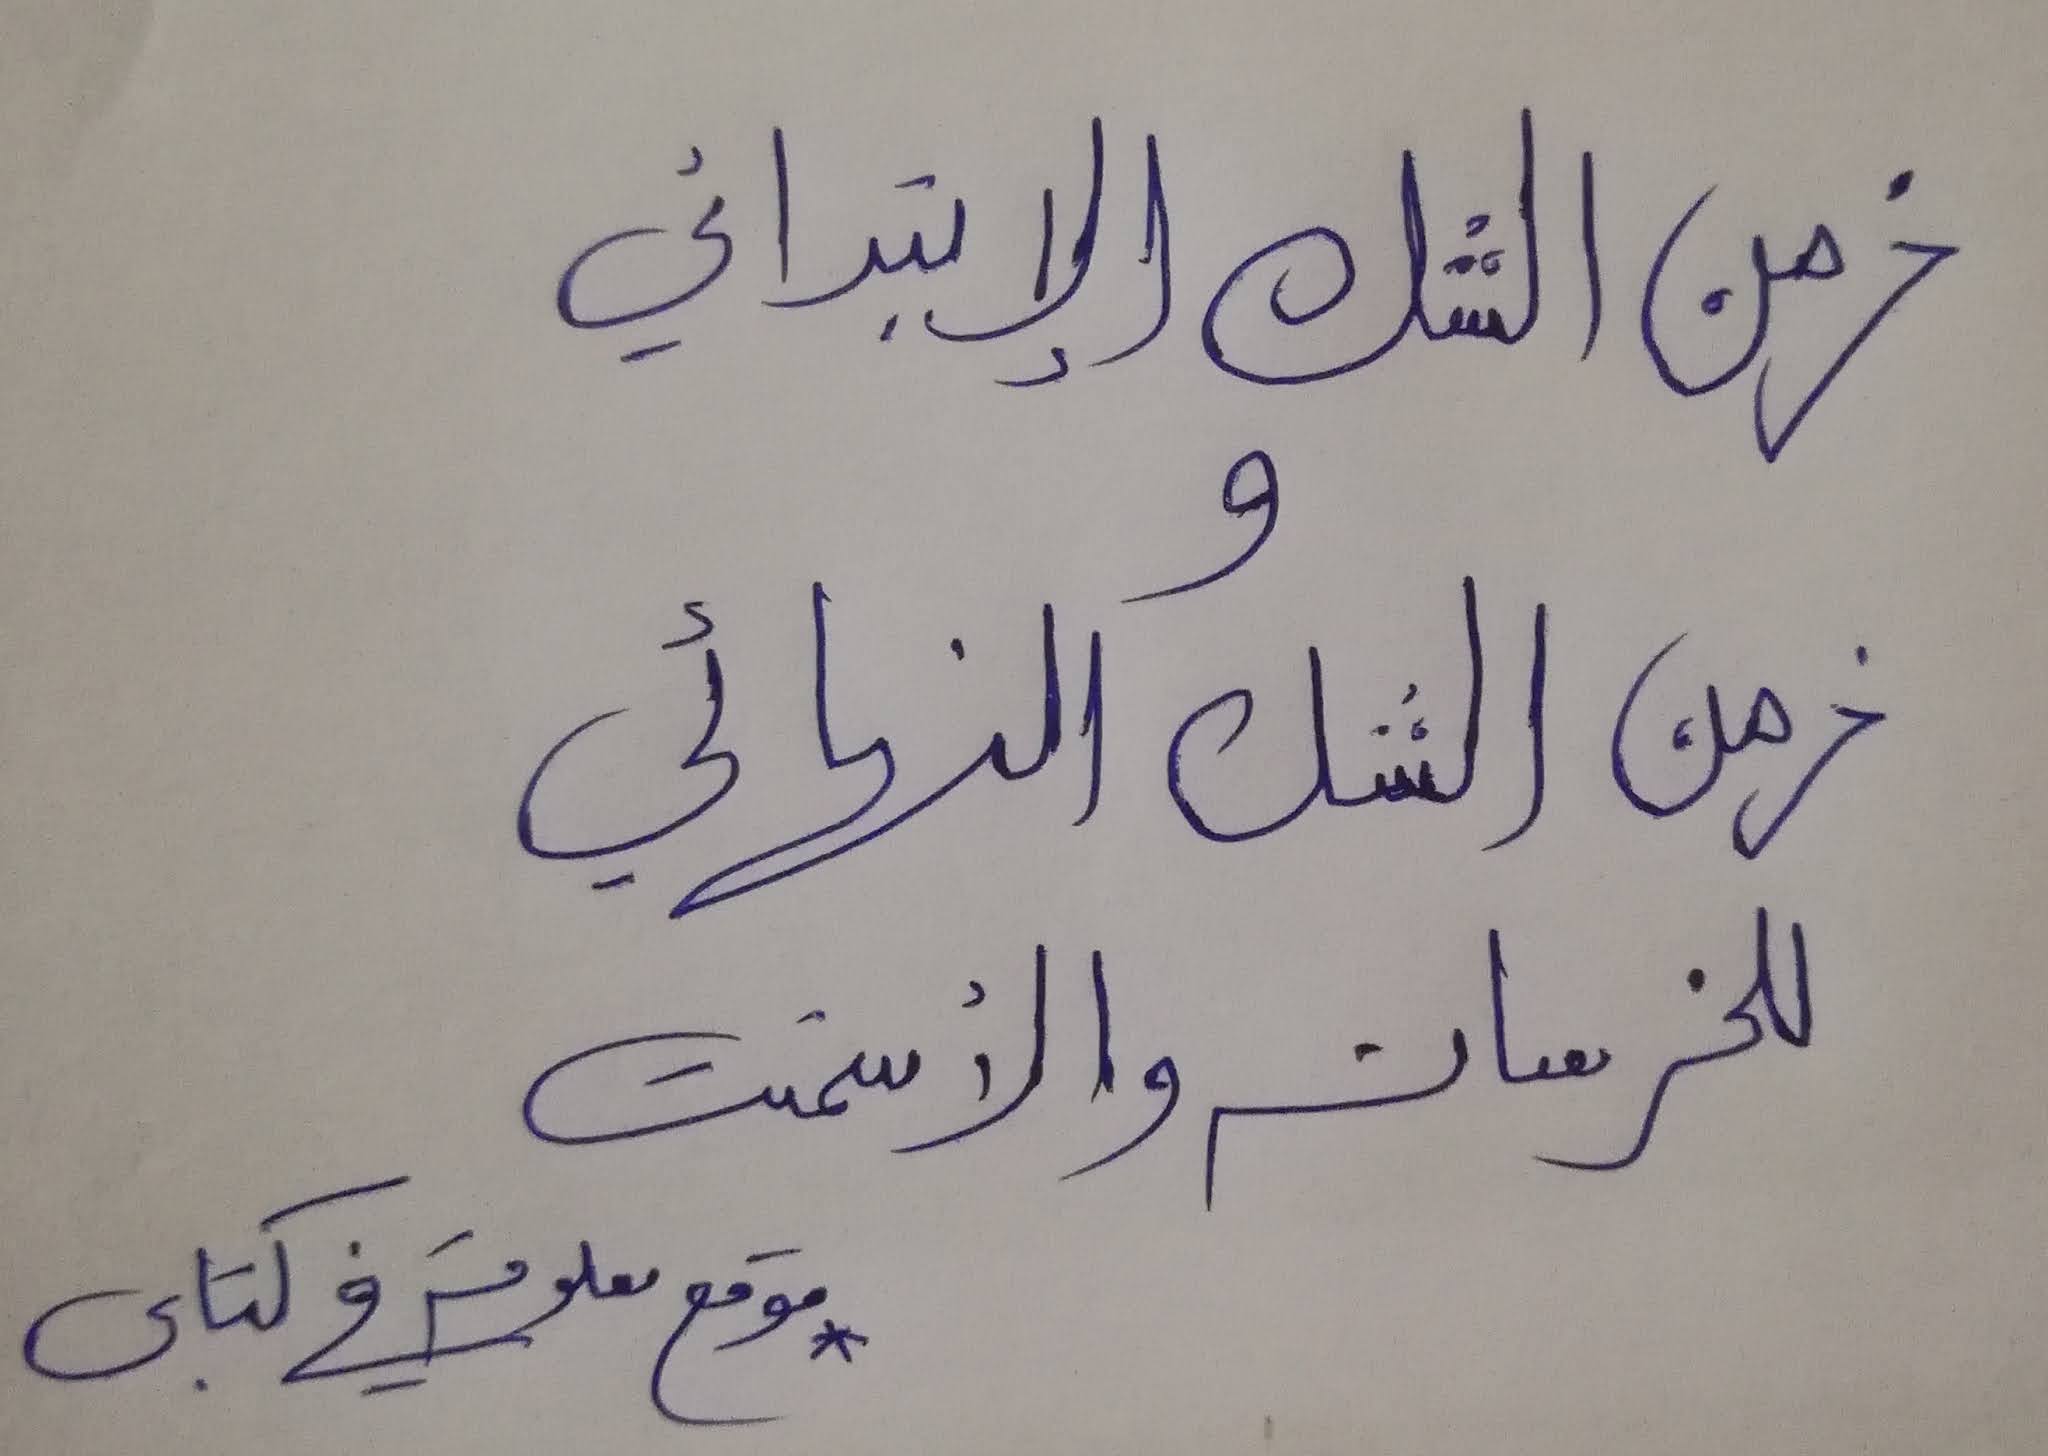 زمن الشك الإبتدائي
و
زمن الشك النهائي
للخرسات والأسمنت
* موقع معلومة في كتابي